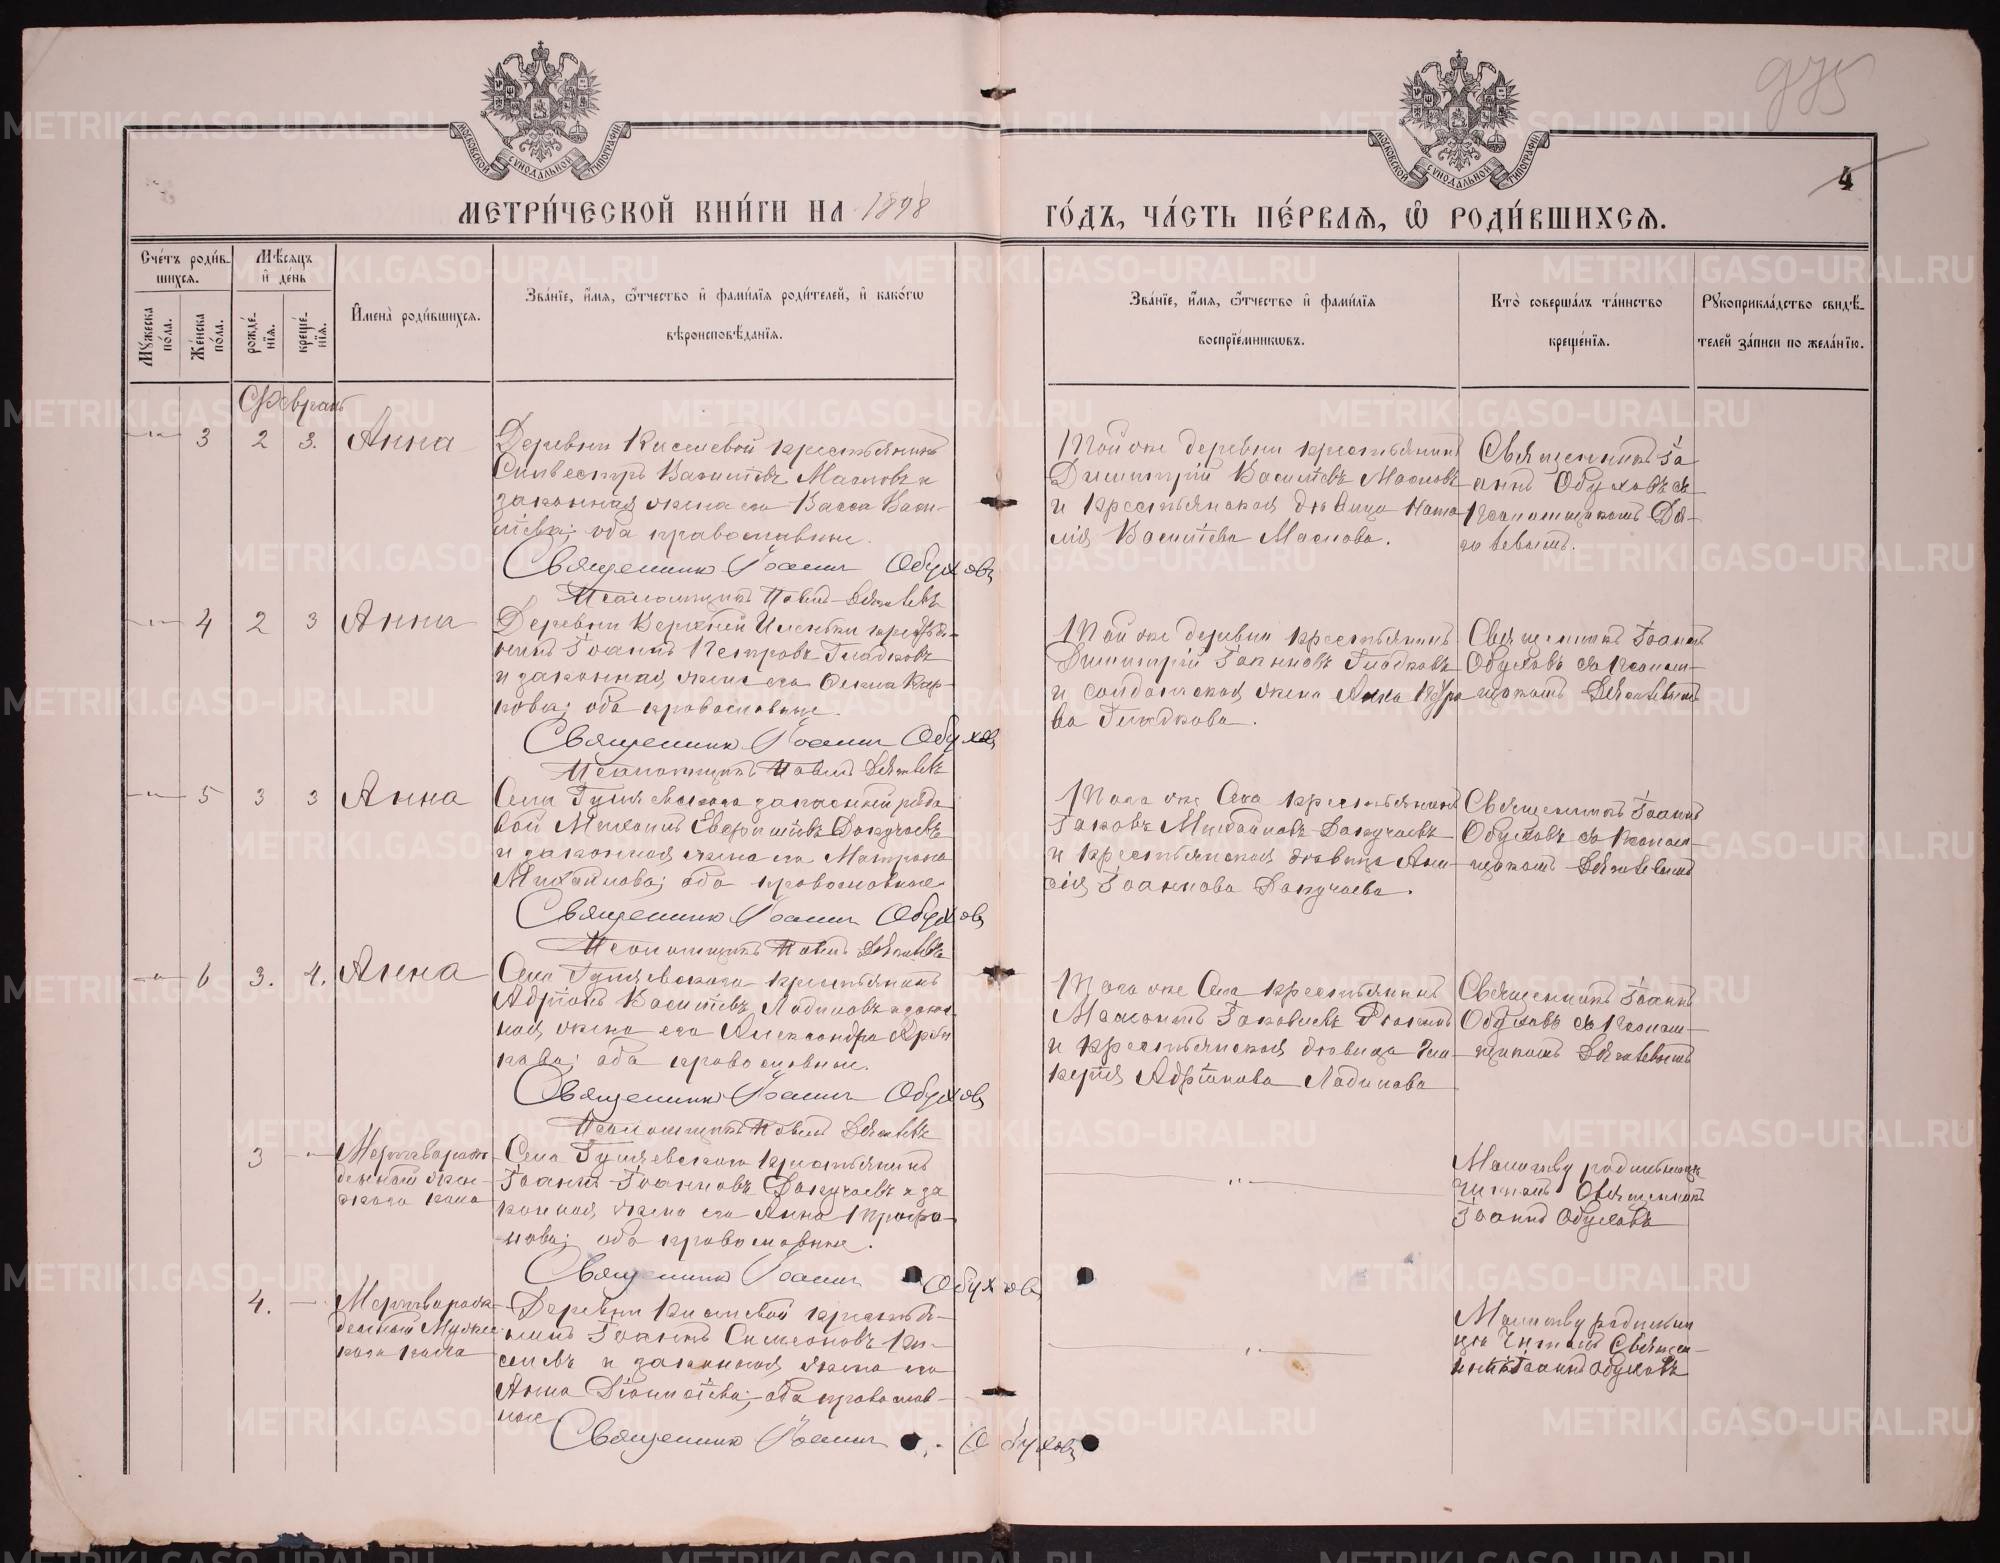 975
4
МОСКОВСКОЙ СѴНОДАЛЬНОЙ ТИПОГРАФІИ
МОСКОВСКОЙ СѴНОДАЛЬНОЙ ТИПОГРАФІИ
МЕТРИ́ЧЕСКОЙ КНИ́ГИ НА 1898 ГО́ДЪ, ЧА́СТЬ ПЕ́РВАѦ, Ѡ҆ РОДИ́ВШИХСѦ.
Сче́тъ роди́в-
шихсѧ.
Мѣ́сѧцъ
и҆ де́нь
Мꙋ́жеска
по́ла.
Же́нска
по́ла.
рожде́-
нїѧ.
креще́-
нїѧ.
И҆мена̀ роди́вшихсѧ.
Зва́нїе, и҆́мѧ, ѻ҆́тчество и҆ фами́лїѧ роди́телей, и҆ како́гѡ
вѣроисповѣ́данїѧ.
Зва́нїе, и҆́мѧ, ѻ҆́тчество и҆ фами́лїѧ
воспрїе́мникѡвъ.
Кто̀ соверша́лъ та́инство
креще́нїѧ.
Рꙋкоприкла́дство свидѣ́-
телей за́писи по жела́нїю.
Февраль
3 2 3. Анна
Деревни Киселевой крестьянинъ
Силвестръ Васильевъ Масловъ и
законная жена его Васса Васи-
льева; оба православные.
Священник Иоанн Обухов
Псаломщикъ Павелъ
Той же деревни крестьянинъ
Димитрій Васильевъ Масловъ
и крестьянская дѣвица Ната
лія Васильева Маслова.
Священникъ Іо
аннъ Обуховъ съ
Псаломщикомъ
4 2 3 Анна
Деревни Верхней крестья-
нинъ Іоаннъ Петровъ Гладковъ
и законная жена его Кар-
пова; оба православные.
Священник Иоанн Обухов
Псаломщикъ Павелъ
Той же деревни крестьянинъ
Димитрій Іоанновъ Гладковъ
и солдатская жена Анна
ва Гладкова.
Священникъ Іоаннъ
Обуховъ съ Псалом-
щикомъ
5 3 3 Анна
Села запасный рядо
вой Михаилъ Докучаевъ
и законная жена его Матрона
Михаилова; оба православные
Священник Иоанн Обухов
Псаломщикъ Павелъ
Того же Села крестьянинъ
Іаковъ Михайловъ Докучаевъ
и крестьянская дѣвица Ани-
сія Іоаннова Докучаева.
Священникъ Іоаннъ
Обуховъ съ Псалом-
щикомъ
6 3. 4. Анна
Села крестьянинъ
Адріанъ Васильевъ Ладиловъ и закон-
ная жена его Александра
оба православные.
Священник Иоанн Обухов
Псаломщикъ Павелъ
Того же Села крестьянинъ
Іаковлевъ
и крестьянская дѣвица Гли
керія Адріанова Ладилова
Священникъ Іоаннъ
Обуховъ съ Псалом-
щикомъ
3 Мертворож
денный жен-
скаго пола
Села крестьянинъ
Іоаннъ Іоанновъ Докучаевъ и за
конная жена его Анна
оба православные.
Священник Иоанн Обухов
Молитву родильницѣ
читалъ Священникъ
Іоаннъ Обуховъ
4. Мертворож
денный Мужес
каго пола
Деревни Киселевой крестья-
нинъ Іоаннъ Симеоновъ Ки-
селевъ и законная жена его
Анна оба православ-
ные
Священник Иоанн Обухов
Молитву родильни
цѣ читалъ Священ-
никъ Іоаннъ Обуховъ
METRIKI.GASO-URAL.RU